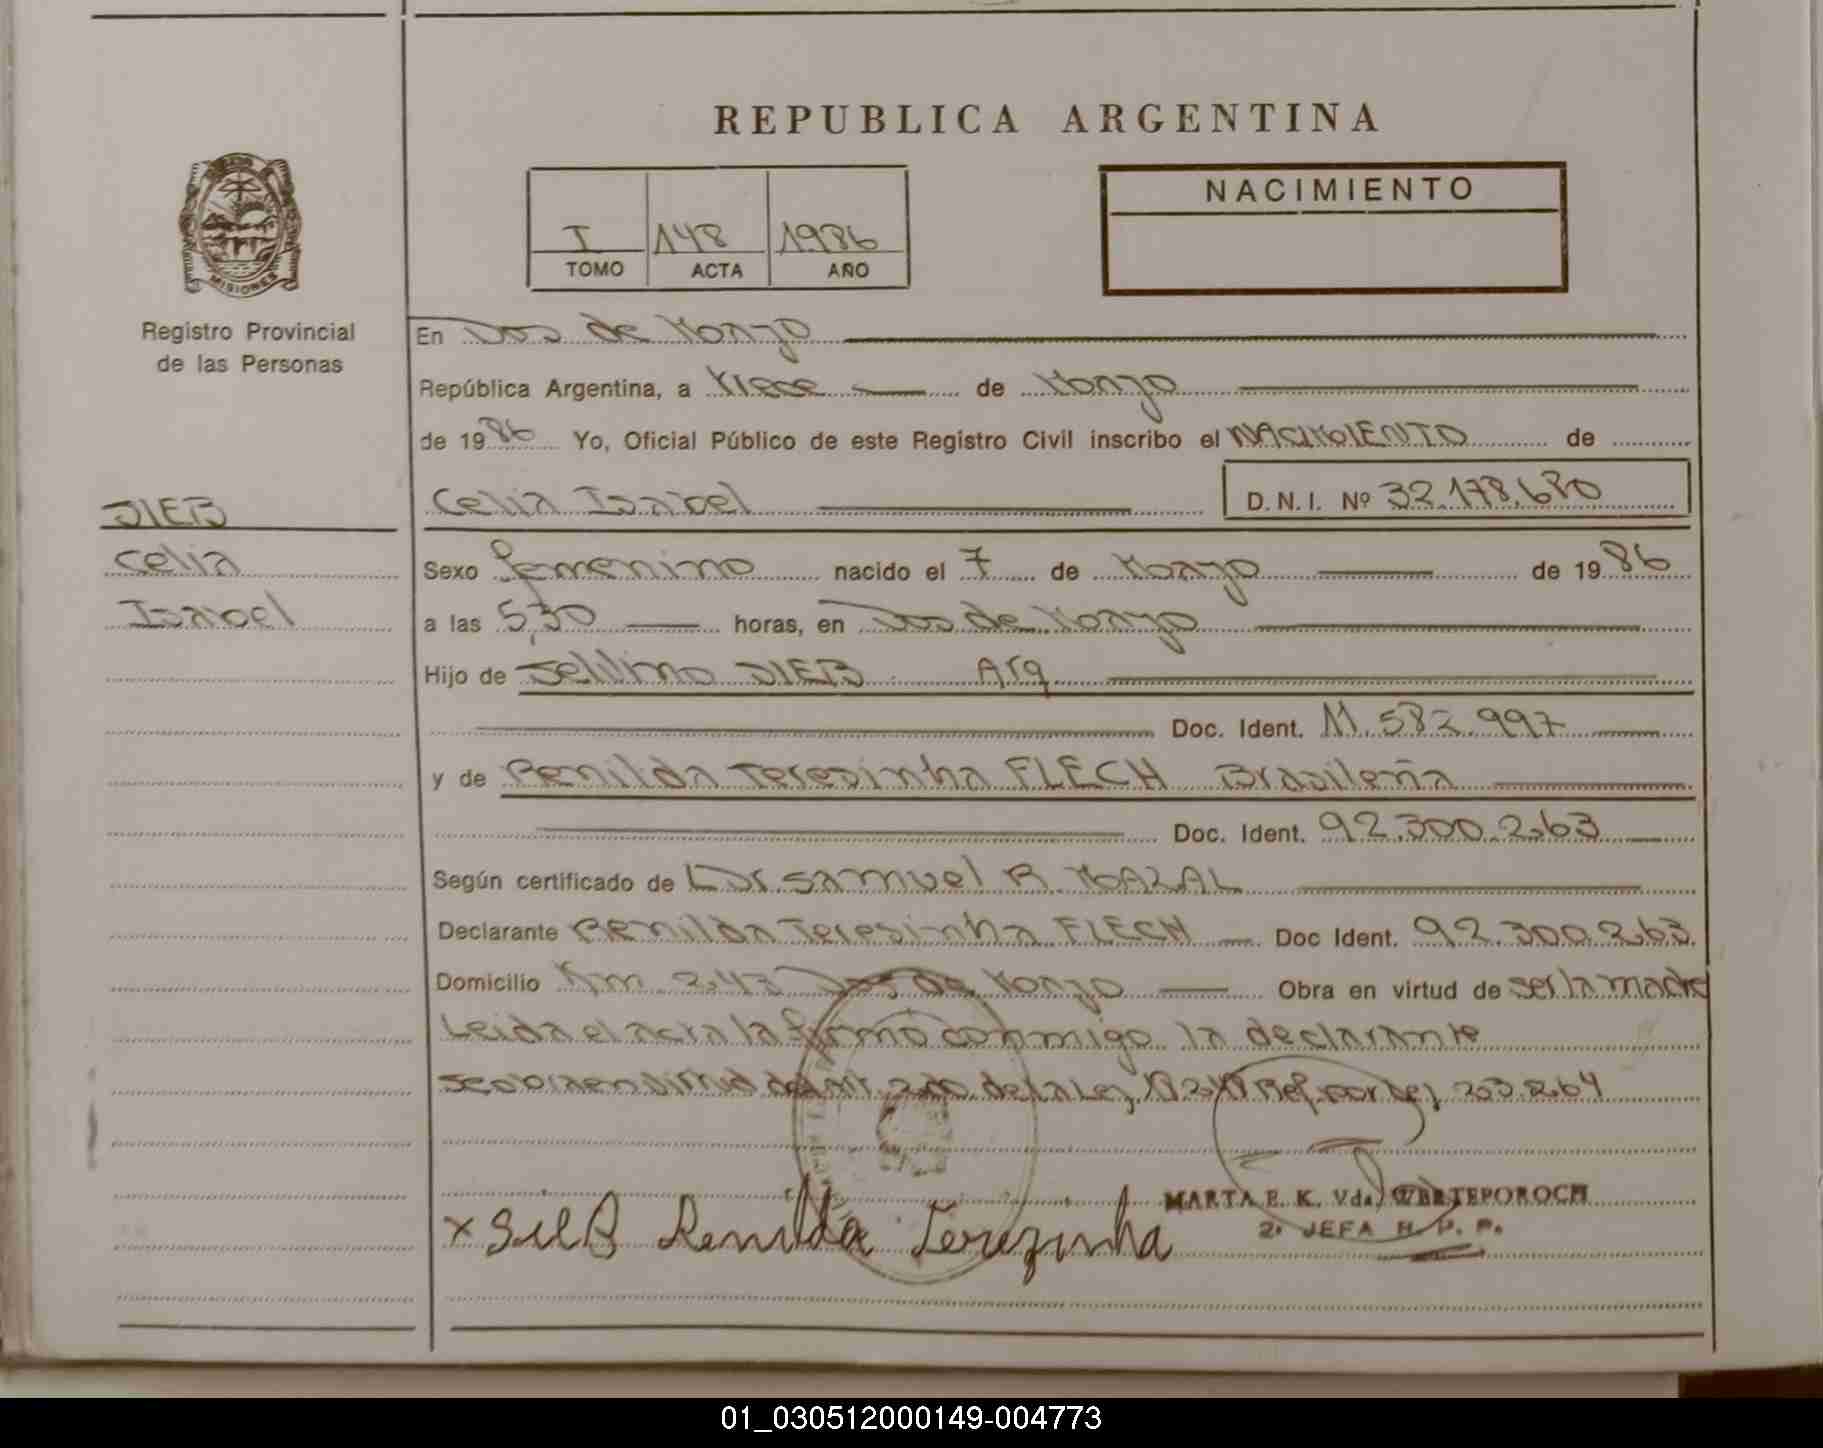 REPUBLICA ARGENTINA
NACIMIENTO
I 148 1986
TOMO ACTA AÑO
MISIONES
Registro Provincial
de las Personas
En Dos de Mayo
República Argentina, a trece de Mayo
de 1986 Yo, Oficial Público de este Registro Civil inscribo el NACIMIENTO de
Celia Isabel D.N.I. Nº 32.178.680
JIEB
Celia
Isabel
Sexo femenino nacido el 7 de Mayo de 1986
a las 5,30 horas, en Dos de Mayo
Hijo de JIEB Arg
Doc. Ident. 11.582.997
y de Renilda Teresinha FLECH Brasileña
Doc. Ident. 92.300.263
Según certificado de Dr. Samuel R. MAZAL
Declarante Renilda Teresinha FLECH Doc Ident. 92.300.263
Domicilio Km. 243 Dos de Mayo Obra en virtud de ser la madre
Leida el acta la firmo conmigo la declarante
del art. de la Ley Ref. por Ley
x Renilda Terezinha
MARTA E. K. Vda. WERTEPOROCH
2º JEFA R. P. P.
01_030512000149-004773